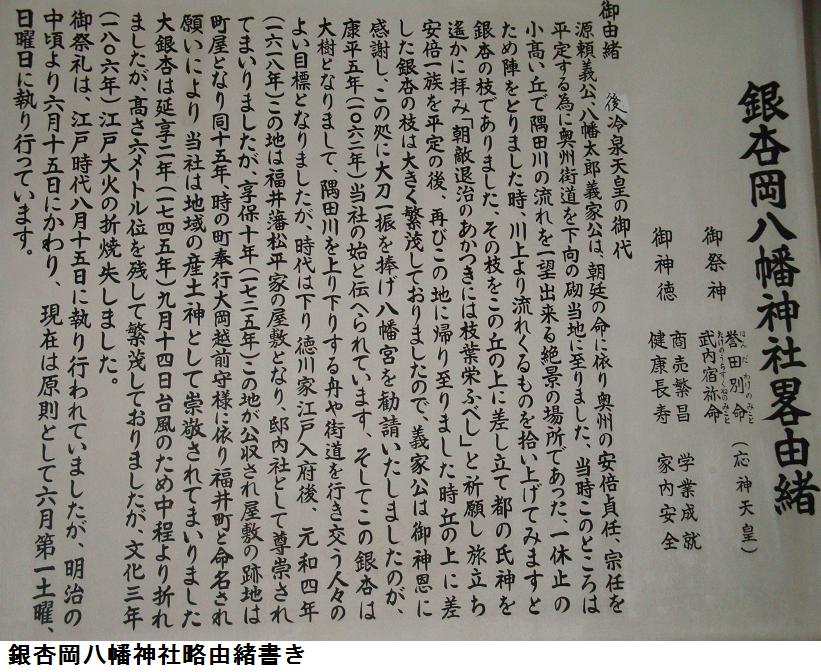 銀杏岡八幡神社畧由緒
御祭神 誉田別命(応神天皇)
ほんだわけのみこと
武内宿祢命
たけのうちすくねのみこと
御神徳 商売繁昌 学業成就
健康長寿 家内安全
御由緒 後冷泉天皇の御代
源頼義公、八幡太郎義家公は、朝廷の命に依り奥州の安倍貞任、宗任を
平定する為に奥州街道を下向の砌当地に至りました、当時このところは
小高い丘で隅田川の流れを一望出来る絶景の場所であった、一休止の
ため陣をとりました時、川上より流れくるものを拾い上げてみますと
銀杏の枝でありました、その枝をこの丘の上に差し立て都の氏神を
遙かに拝み「朝敵退治のあかつきには枝葉栄ふべし」と祈願し旅立ち
安倍一族を平定の後、再びこの地に帰り至りました時丘の上に差
した銀杏の枝は大きく繁茂しておりましたので、義家公は御神恩に
感謝し、この処に大刀一振を捧げ八幡宮を勧請いたしましたのが、
康平五年(一〇六二年)当社の始と伝へられています、そしてこの銀杏は
大樹となりまして、隅田川を上り下りする舟や街道を行き交う人々の
よい目標となりましたが、時代は下り徳川家江戸入府後、元和四年
(一六一八年)この地は福井藩松平家の屋敷となり、邸内社として尊崇され
てまいりましたが、享保十年(一七二五年)この地が公収され屋敷の跡地は
町屋となり同十五年、時の町奉行大岡越前守様に依り福井町と命名され
願いにより当社は地域の産土神として崇敬されてまいりました
大銀杏は延享二年(一七四五年)九月十四日台風のため中程より折れ
ましたが、高さ六メートル位を残して繁茂しておりましたが、文化三年
(一八〇六年)江戸大火の折焼失しました。
御祭礼は、江戸時代八月十五日に執り行われていましたが、明治の
中頃より六月十五日にかわり、現在は原則として六月第一土曜、
日曜日に執り行っています。
銀杏岡八幡神社略由緒書き